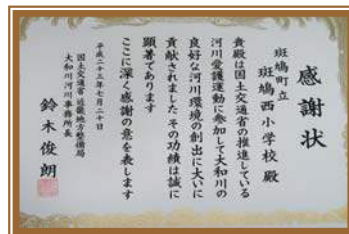 感謝状
斑鳩町立
斑鳩西小学校殿
貴殿は国土交通省の推進している
河川愛護運動に参加して大和川の
良好な河川環境の創出に大いに
貢献されました その功績は誠に
顕著であります
ここに深く感謝の意を表します
平成二十三年七月二十日
国土交通省 近畿地方整備局
大和川河川事務所長
鈴木俊朗